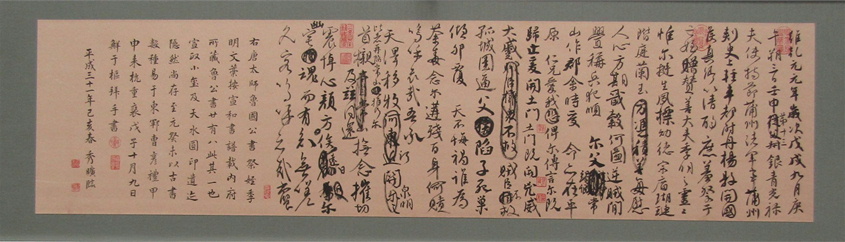 維乾元元年歲次戊戌九月庚
午朔三日壬申銀青光祿
夫使持節蒲州諸軍事蒲州
刺史上輕車都尉丹楊縣開國
侯真卿以清酌庶羞祭于
亡姪贈贊善大夫季明之靈
惟爾挺生夙標幼德宗廟瑚璉
階庭蘭玉方憑積善每慰
人心方期戩穀何圖逆賊閒
釁稱兵犯順爾父竭誠常
山作郡余時受命亦在平
原仁兄愛我俾爾傳言爾既
歸止爰開土門土門既開凶威
大蹙賊臣擁衆不救賊臣不救
孤城圍逼父陷子死巢
傾卵覆天不悔禍誰為
荼毒念爾遘殘百身何贖
嗚呼哀哉吾承
天澤移牧河關泉明
首櫬及茲同還撫念摧切
震悼心顏方俟遠日
幽宅魂而有知無嗟
久客嗚呼哀哉尚饗
右唐太師魯國公書祭姪季
明文藁按宣和書譜載内府
所藏魯公書廿有八此其一也
宣政小璽及天水圓印遺迹
隱然尚存至元癸未以古書
數種易于東鄆曹彥禮甲
申來杭重裝戊子十月九日
鮮于樞拜手書
平成三十一年己亥春 秀嶺臨